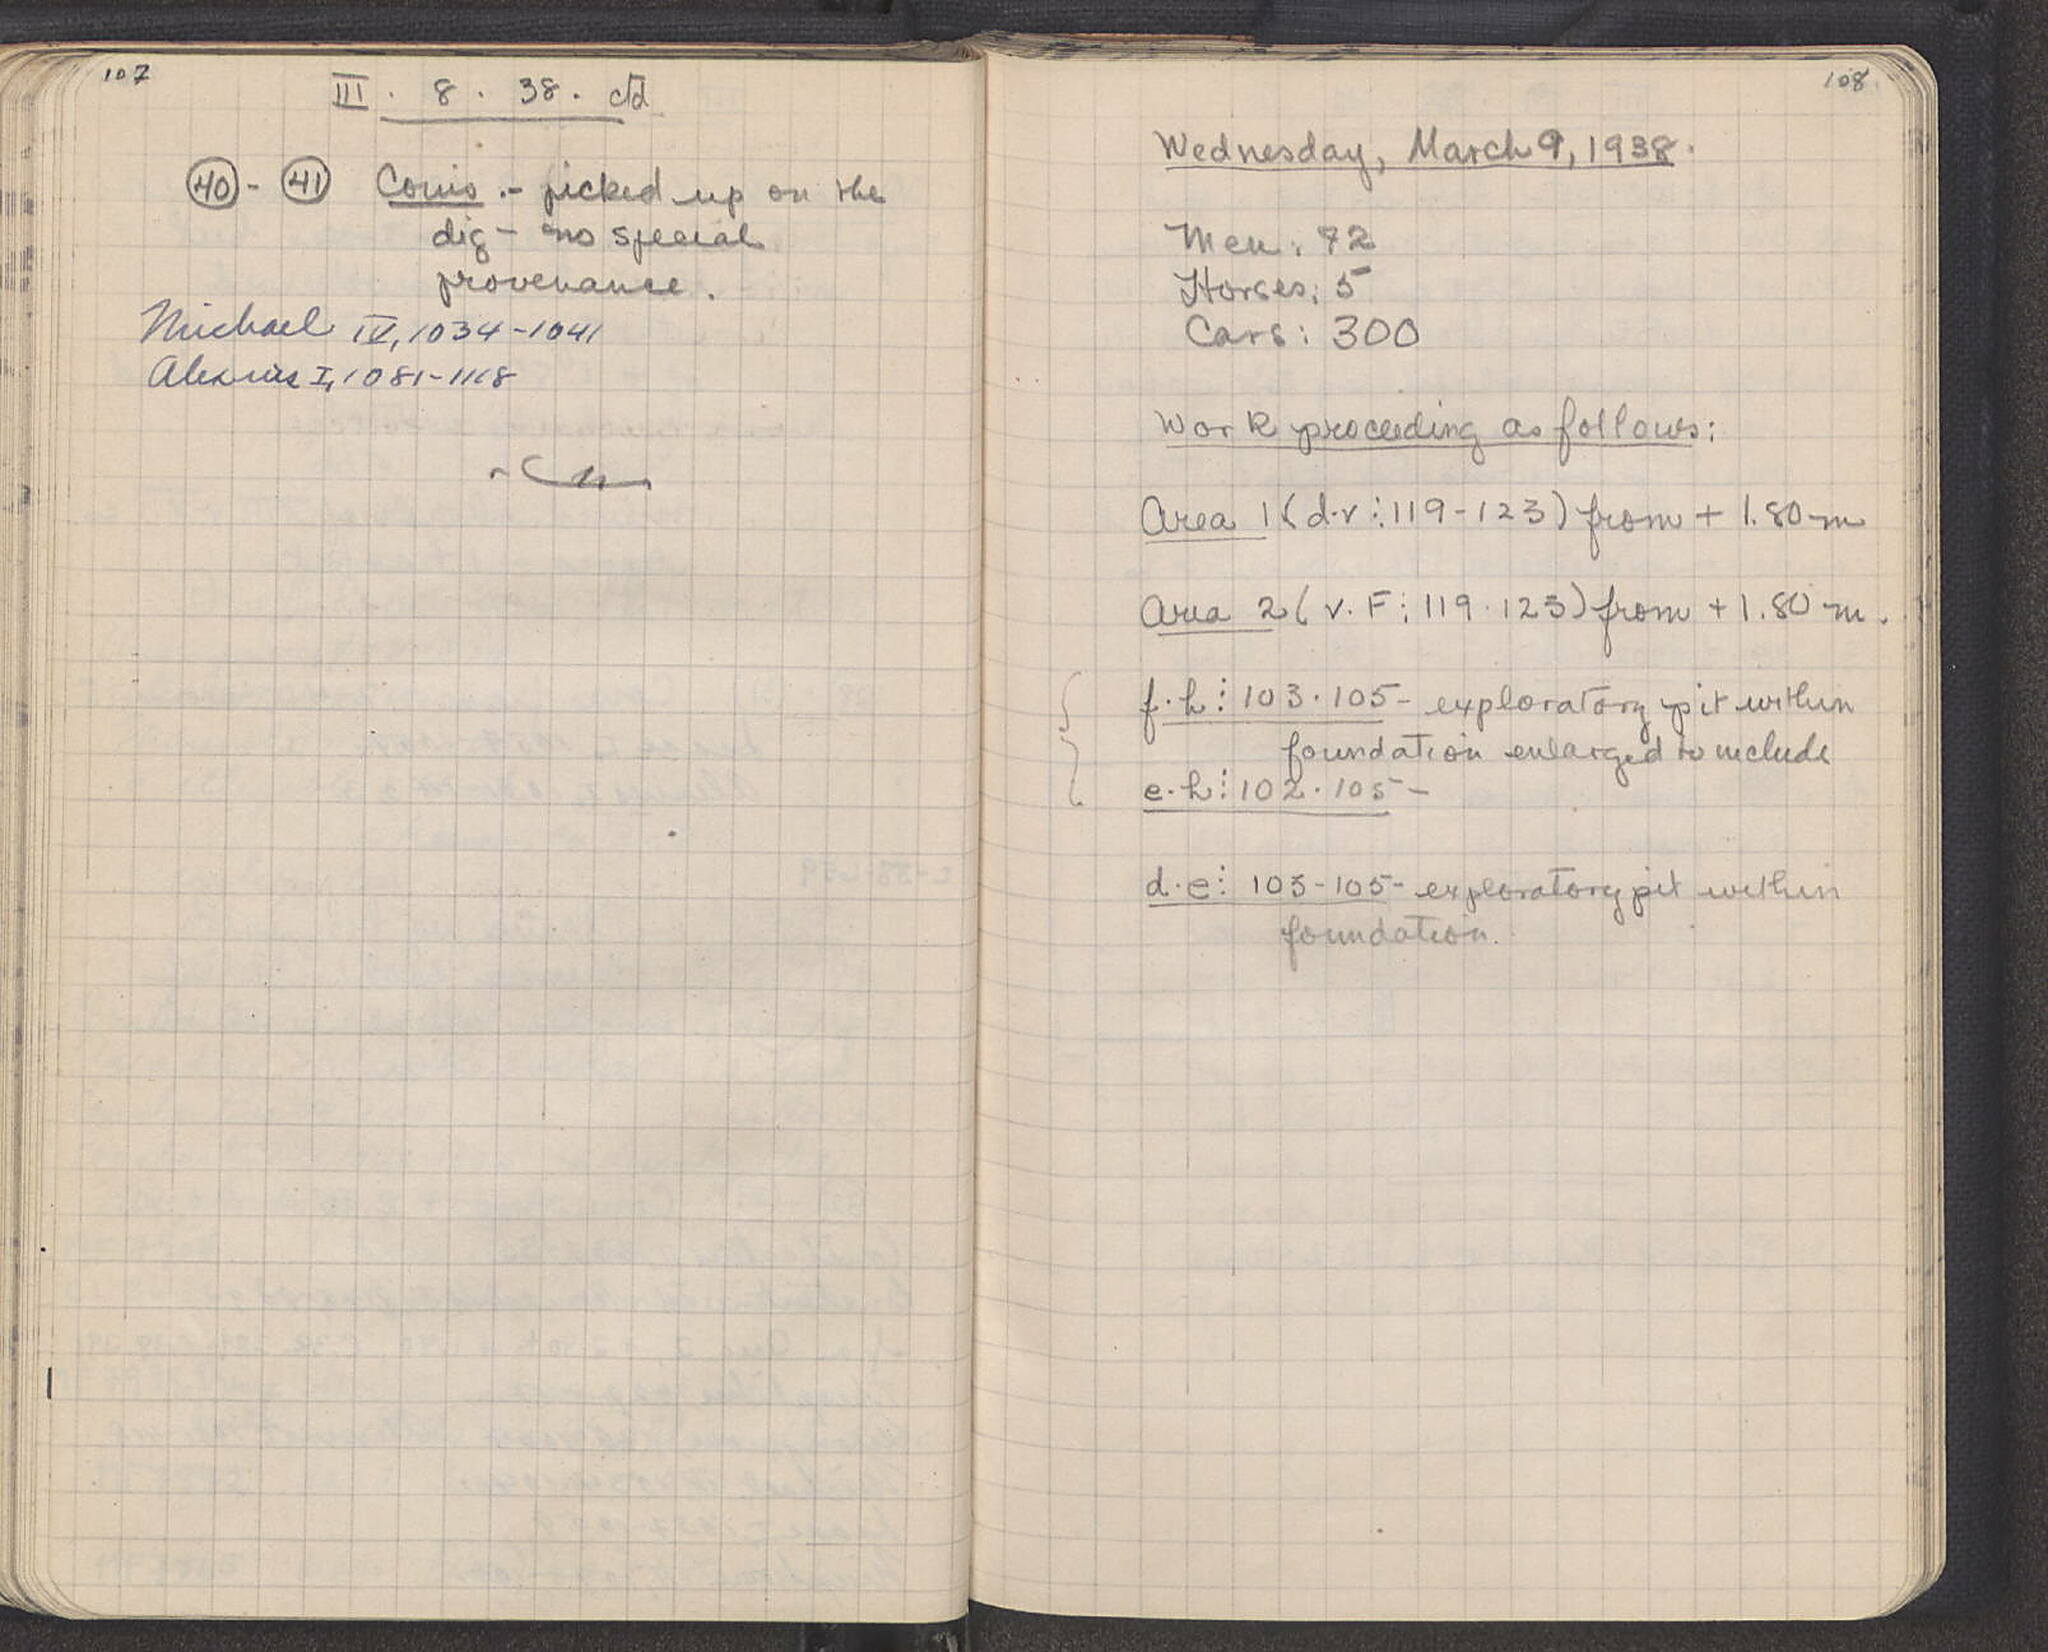 107
III . 8 . 38 . c'td
40 - 41 Coins .- picked up on the
dig - no special
provenance.
Michael IV, 1034-1041
Alexius I, 1081-1118
108
Wednesday, March 9, 1938.
Men: 72
Horses: 5
Cars: 300
Work proceeding as follows:
Area 1 (d-v: 119-123) from + 1.80 m
Area 2 (v. F: 119.123) from + 1.80 m.
f.h: 103.105 - exploratory pit within
foundation enlarged to include
e.h: 102.105 -
d.e: 103-105 - exploratory pit within
foundation.